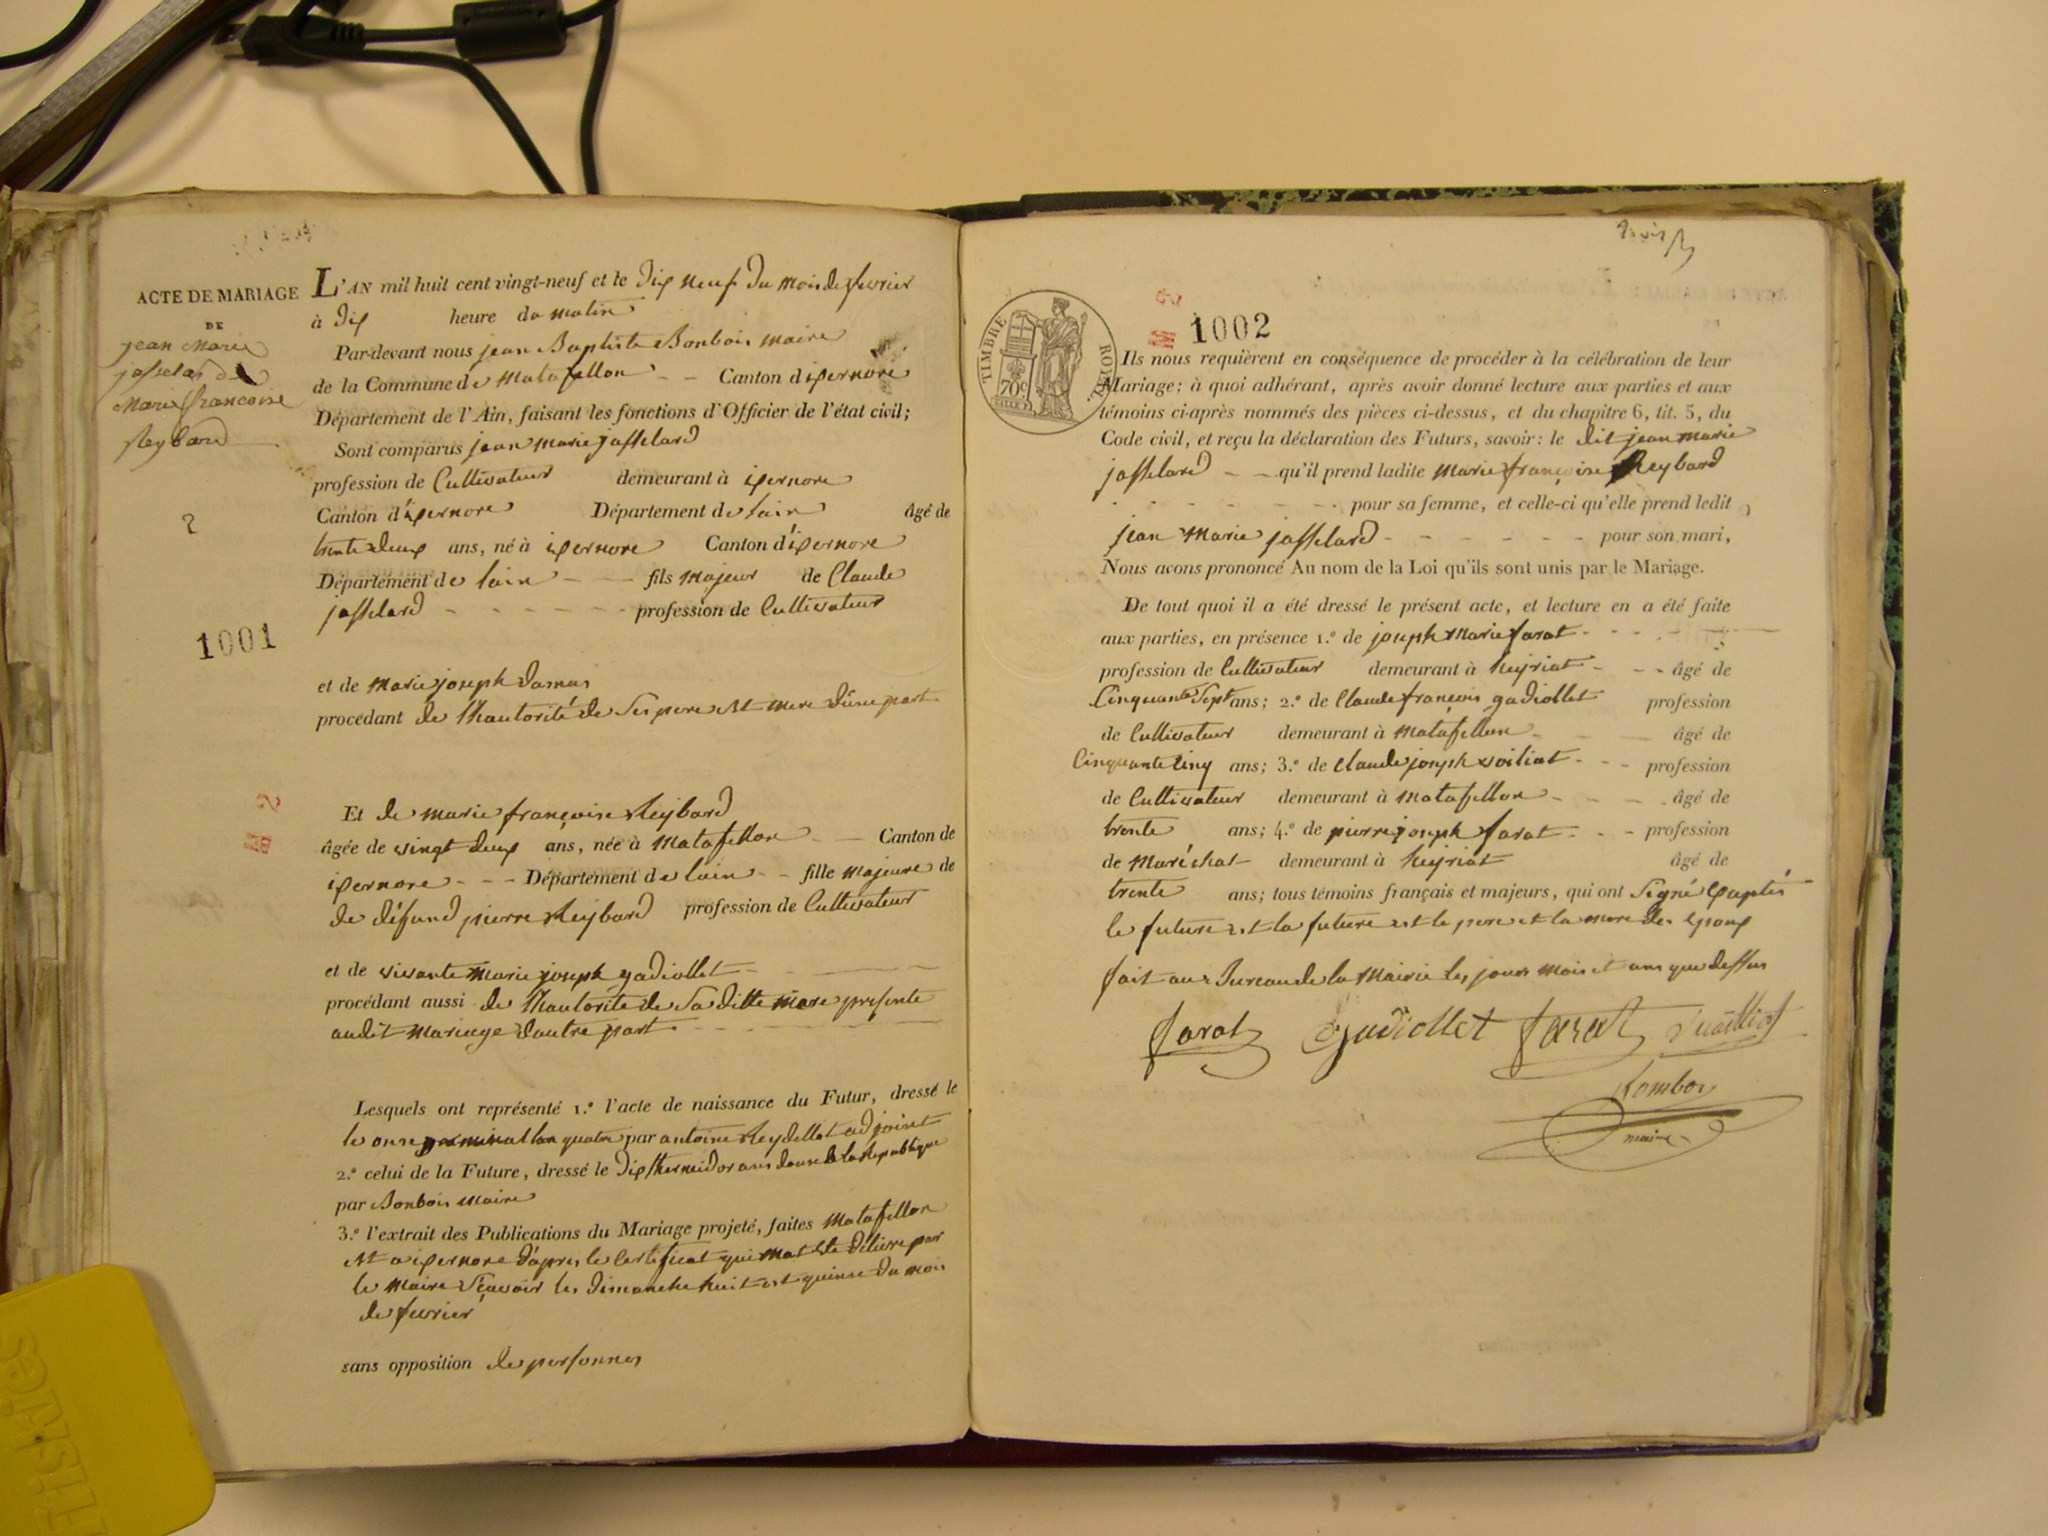 ACTE DE MARIAGE
DE
jean Marie
josselard
Marie francoise
Reybard
2
1001
L'AN mil huit cent vingt-neuf et le dix neuf du mois de fevrier
à dix heure du matin
Par-devant nous jean Baptiste Bonbois maire
de la Commune de Matafellon Canton d'ixernore
Département de l'Ain, faisant les fonctions d'Officier de l'état civil;
Sont comparus jean marie josselard
profession de Cultivateur demeurant à ixernore
Canton d'ixernore Département de lain âgé de
trente deux ans, né à ixernore Canton d'ixernore
Département de lain fils majeur de Claude
josselard profession de Cultivateur
et de marie joseph damas
procédant de l'hautorité de ses pere et mere dune part
Et de marie françoise Reybard
âgée de vingt deux ans, née à Matafellon Canton de
ixernore Département de lain fille majeure de
de défund pierre Reybard profession de Cultivateur
et de vivante Marie joseph gadiollet
procédant aussi de l'hautorité de Sa ditte mere presente
audit mariage dautre part
Lesquels ont représenté 1.º l'acte de naissance du Futur, dressé le
le onze germinal lan quatre par antoine Reydellet adjoint
2.º celui de la Future, dressé le dix thermidor ans douse de la Republique
par Bonbois maire
3.º l'extrait des Publications du Mariage projeté, faites Matafellon
et a ixernore d'apres le Certificat qui mat ete délivre par
le maire Sçavoir les dimanche huit est quinse du mois
de fevrier
sans opposition de personnes
TIMBRE ROYAL
70c
1002
Ils nous requièrent en conséquence de procéder à la célébration de leur
Mariage; à quoi adhérant, après avoir donné lecture aux parties et aux
témoins ci-après nommés des pièces ci-dessus, et du chapitre 6, tit. 5, du
Code civil, et reçu la déclaration des Futurs, savoir: le dit jean marie
josselard qu'il prend ladite marie françoise Reybard
pour sa femme, et celle-ci qu'elle prend ledit
jean Marie josselard pour son mari,
Nous avons prononcé Au nom de la Loi qu'ils sont unis par le Mariage.
De tout quoi il a été dressé le présent acte, et lecture en a été faite
aux parties, en présence 1.º de joseph marie farat
profession de Cultivateur demeurant à heyriat âgé de
Cinquante Sept ans; 2.º de Claude françois gadiollet profession
de Cultivateur demeurant à Matafellon âgé de
Cinquante cinq ans; 3.º de claude joseph profession
de Cultivateur demeurant à Matafellon âgé de
trente ans; 4.º de pierre joseph farat profession
de Maréchal demeurant à heyriat âgé de
trente ans; tous témoins français et majeurs, qui ont Signé Exeptés
le future est la future est le pere et la mere des epoux
fait au Bureau de la Mairie les jours mois et ans que dessus
farat Gadiollet farat
Bombois
maire